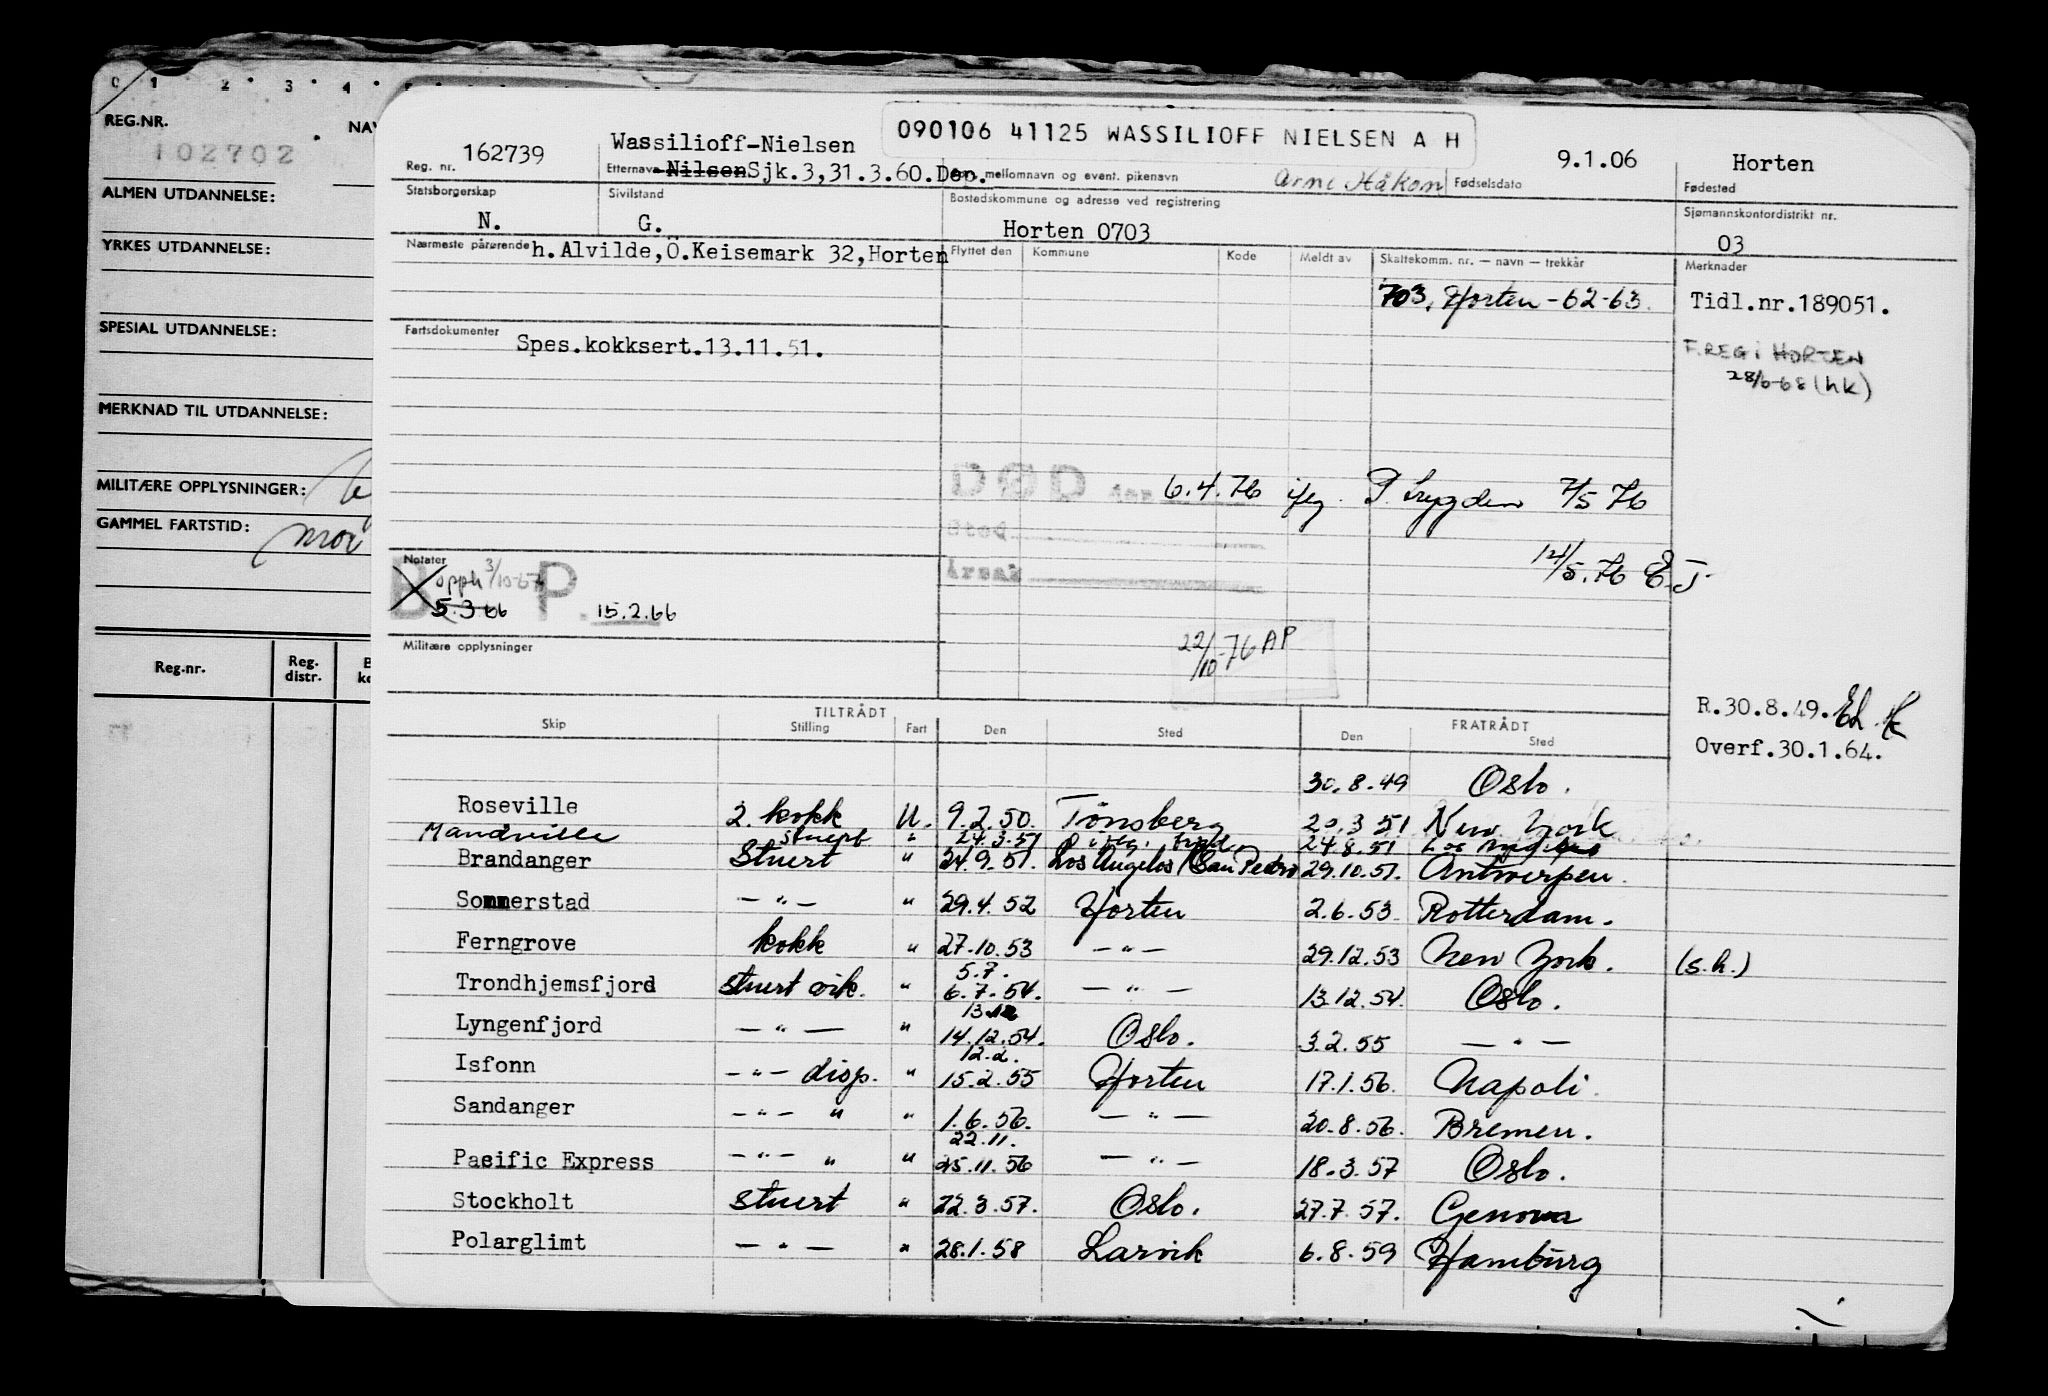 0 1 2 3 4
REG.NR.
102702
ALMEN UTDANNELSE:
YRKES UTDANNELSE:
SPESIAL UTDANNELSE:
MERKNAD TIL UTDANNELSE:
MILITÆRE OPPLYSNINGER:
GAMMEL FARTSTID:
Reg.nr. Reg. distr.
Reg. nr. 162739
Wassilioff-Nielsen
090106 41125 WASSILIOFF NIELSEN A H
9.1.06 Horten
Etternavn Nilsen Sjk.3,31.3.60.Dep. mellomnavn og event. pikenavn Arne Håkon Fødselsdato Fødested
Statsborgerskap Sivilstand Bostedskommune og adresse ved registrering Sjømannskontordistrikt nr.
N. G. Horten 0703 03
Nærmeste pårørende h.Alvilde,Ö.Keisemark 32,Horten Flyttet den Kommune Kode Meldt av Skattekomm. nr. — navn — trekkår Merknader
703, Horten - 62-63. Tidl.nr.189051.
Fartsdokumenter Spes.kokksert.13.11.51.
F.REG i HORTEN
28/6-68 (hk)
DØD den 6.4.76 P. Trygden 7/5 76
Sted
Årsak 12/5.76 E.J
Notater
B opph 3/10-67 P. 15.2.66
5.3 66
22/10-76 AP
Militære opplysninger
R.30.8.49.
Overf.30.1.64.
TILTRÅDT FRATRÅDT
Skip Stilling Fart Den Sted Den Sted
30.8.49 Oslo.
Roseville 2. kokk U. 9.2.50. Tønsberg 20.3 51 New York
Mandville stuert " 24.3.51 24.8.51 Los Angelos
Brandanger Stuert " 24.9.51. Los Angelos/San Pedro 29.10.51. Antwerpen.
Sommerstad — " — " 29.4.52 Horten 2.6.53 Rotterdam.
Ferngrove kokk " 27.10.53 — " — 29.12.53 New York. (s.h.)
Trondhjemsfjord stuert vik. " 5.7. 6.7.54. — " — 13.12.54. Oslo.
Lyngenfjord — " — " 13.12 14.12.54. Oslo. 3.2.55 — " —
Isfonn — " — disp. " 12.2. 15.2.55 Horten 17.1.56. Napoli.
Sandanger — " — " " 1.6.56. — " — 20.8.56. Bremen.
Pacific Express — " — " " 22.11. 25.11.56 — " — 18.3.57 Oslo.
Stockholt Stuert " 22.3.57. Oslo. 27.7.57. Genova
Polarglimt — " — " 28.1.58 Larvik 6.8.59 Hamburg